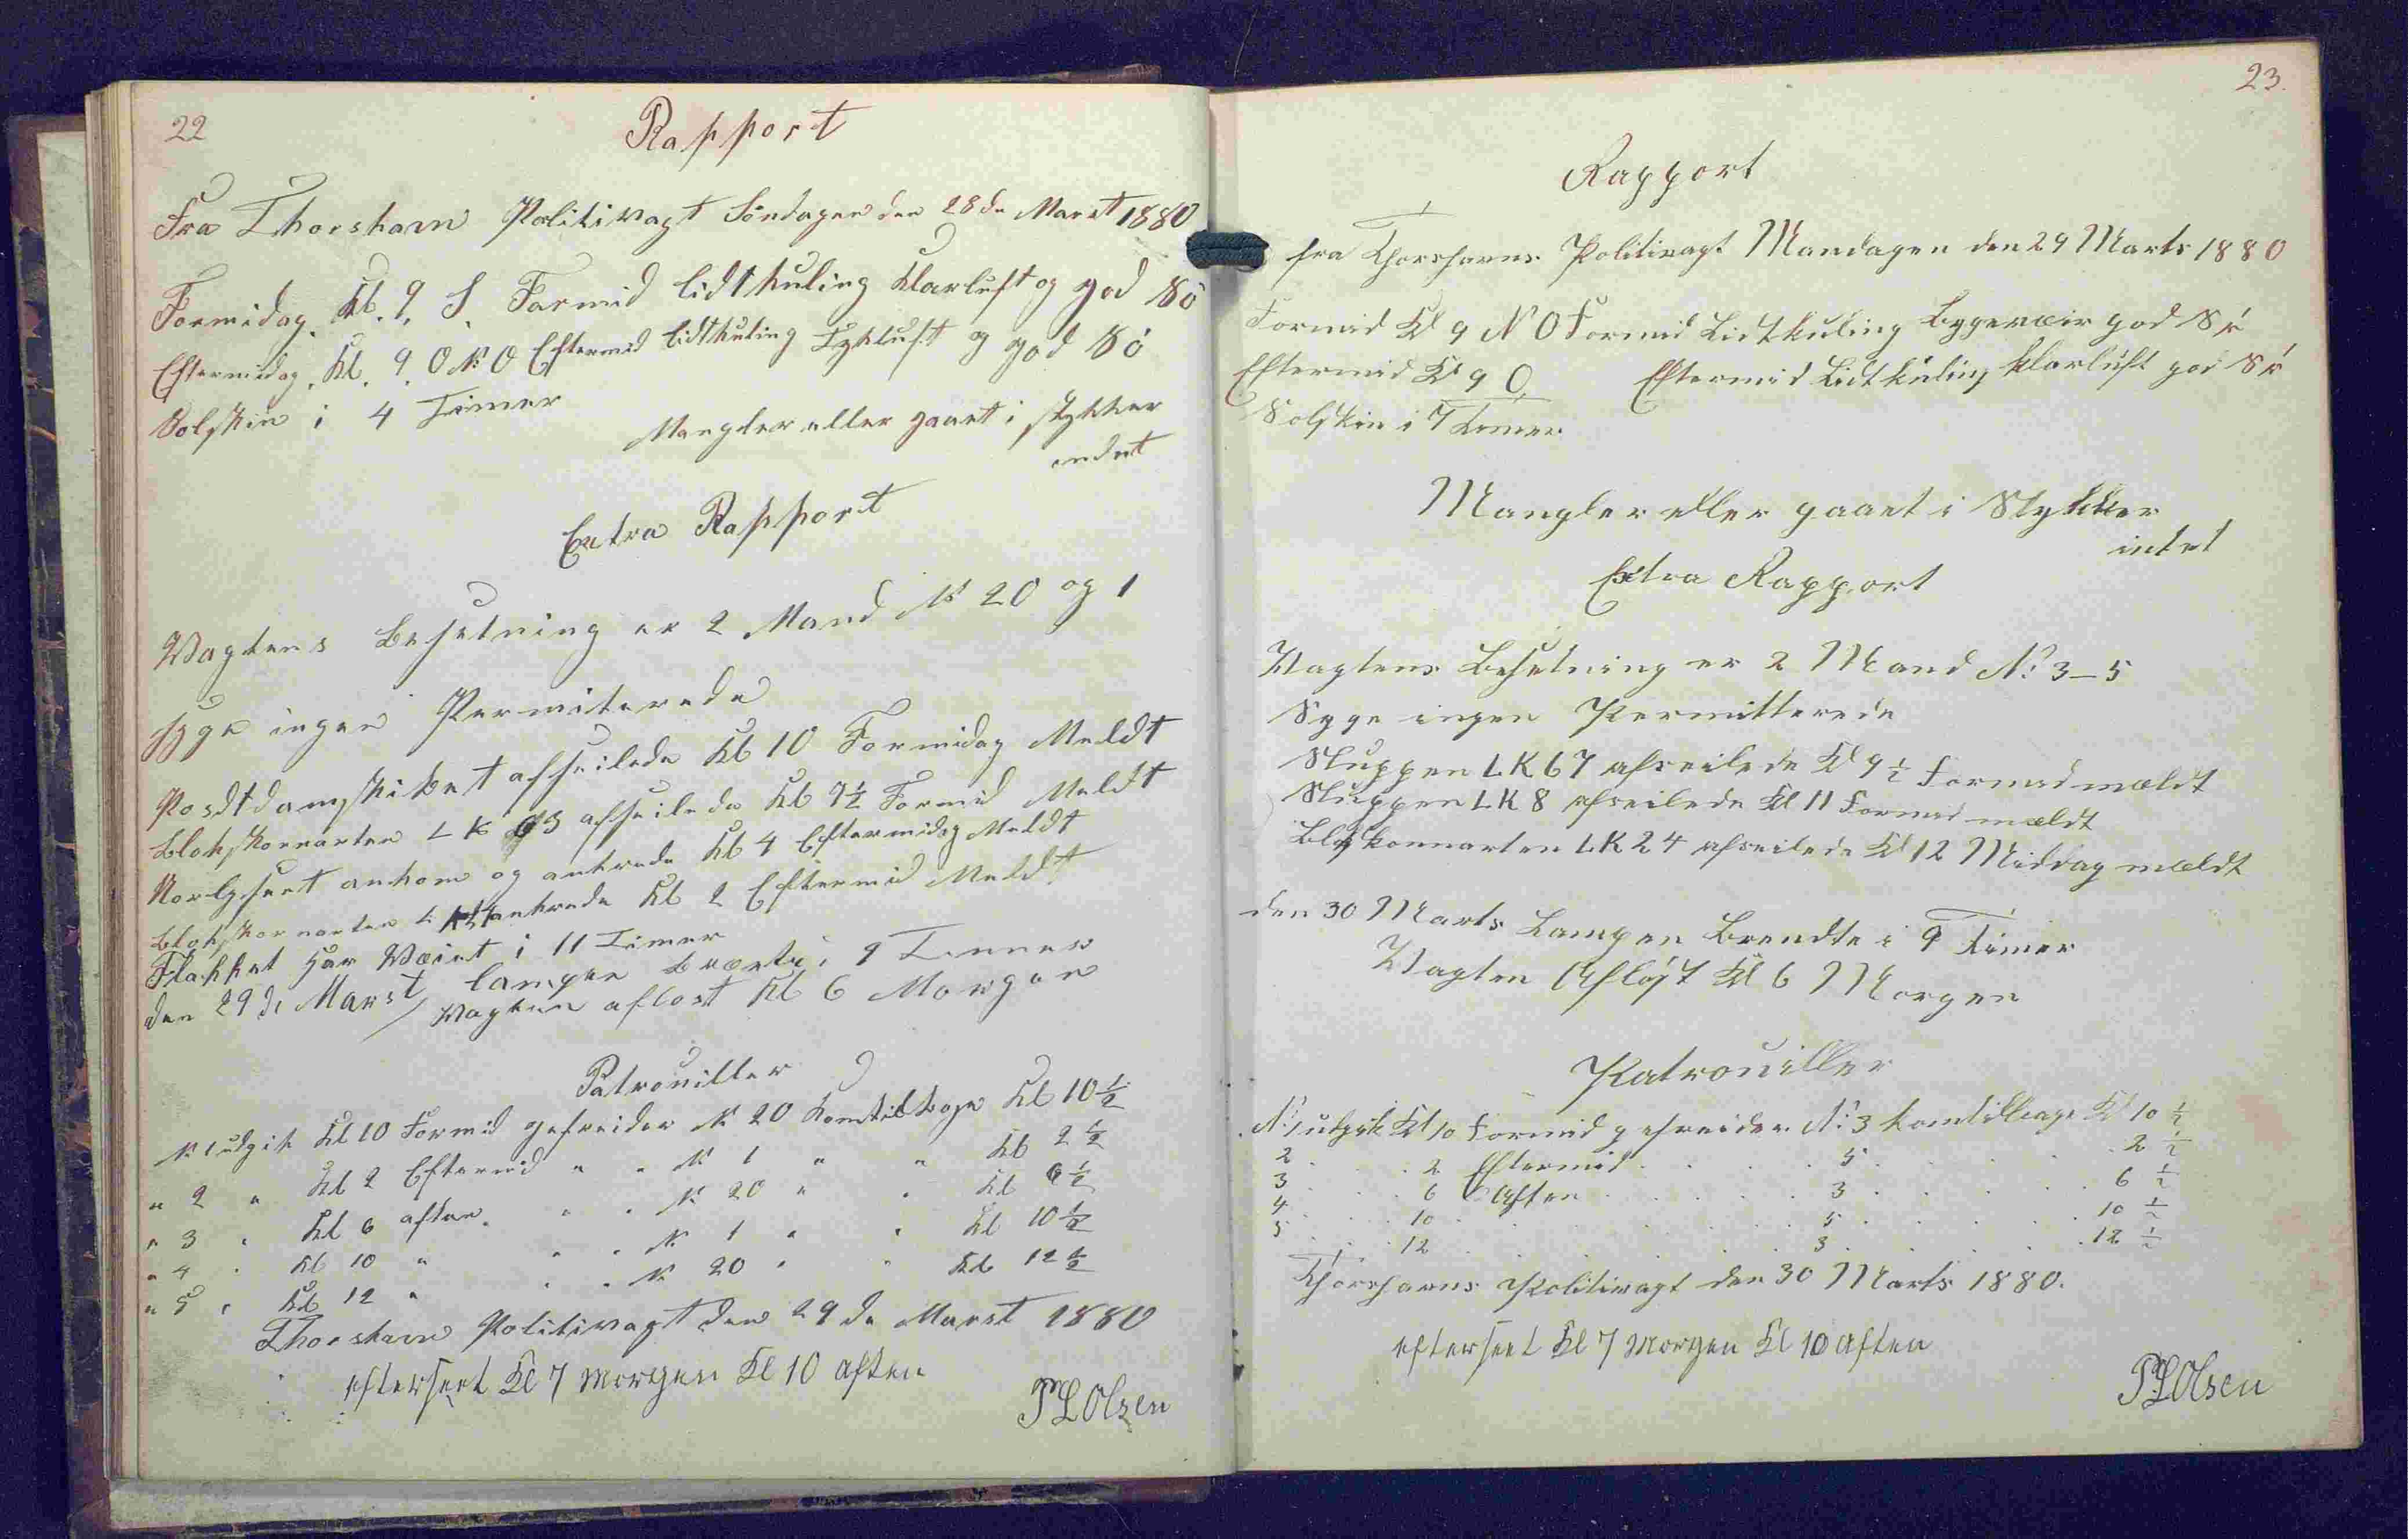 22
Rapport
Fra Thorshavn Politivagt Söndagen den 28de Marst 1880
Formidag. Kl. 9. S. Formid lidt kuling Klarluft og god Sö
Eftermidag. Kl. 9. O N O Eftermid lidt kuling Tykluft og god Sö
Solskin i 4 Timer
Mangler eller gaaet i stykker
indet
Extra Rapport
Vagtens Besetning er 2 Mand N 20 og 1
syge ingen Permiterede
Posdtdampskibet afseilede Kl 10 Formidag Meldt
Blokskonnarten L K 93 afseilede Kl 9½ Formid Meldt
Norlyset ankom og ankrede Kl 4 Eftermidag Meldt
Blokskonnarten L K 24 ankrede Kl 2 Eftermid Meldt
Flakket har Væiet i 11 Timer
den 29de Marst lampen Brente i 9 Timer
Vagten aflöst Kl 6 Morgen
Patrouiller
N 1 udgik Kl 10 Formid gefreider N 20 kom tilbage Kl 10½
" 2 " Kl 2 Eftermid " " N 1 " " Kl 2½
" 3 " Kl 6 aften " " N 20 " " Kl 6½
" 4 " Kl 10 " " " N 1 " " Kl 10½
" 5 " Kl 12 " " " N 20 " " Kl 12½
Thorshavn Politivagt den 29de Marst 1880
efterseet Kl 7 Morgen Kl 10 aften
P L Olsen
23.
Rapport
fra Thorshavns Politivagt Mandagen den 29 Marts 1880
Formid Kl 9 N O Formid Lidt kuling Bygeveir god Sø
Eftermid Kl 9 O. Eftermid Lidt kuling klarluft god Sø
Solskin i 7 Timer
Mangler eller gaaet i Stykker
intet
Extra Rapport
Vagtens Besetning er 2 Mand No 3–5
Syge ingen Permitterede
Sluppen L K 67 afseilede Kl 9½ Formid mældt
Sluppen L K 8 afseilede Kl 11 Formid mældt
Blokskonnarten L K 24 afseilede Kl 12 Middag mældt
den 30 Marts Lampen Brendte i 9 Timer
Vagten Afløst Kl 6 Morgen
Patrouiller
No 1 udgik Kl 10 Formid gefreider No 3 kom tilbage Kl 10½
2 . . . 2 Eftermid . . . 5 . . . 2½
3 . . . 6 Aften . . . 3 . . . 6½
4 . . . 10 . . . 5 . . . 10½
5 . . . 12 . . . 3 . . . 12½
Thorshavns Politivagt den 30 Marts 1880.
efterseet Kl 7 Morgen Kl 10 aften
P L Olsen